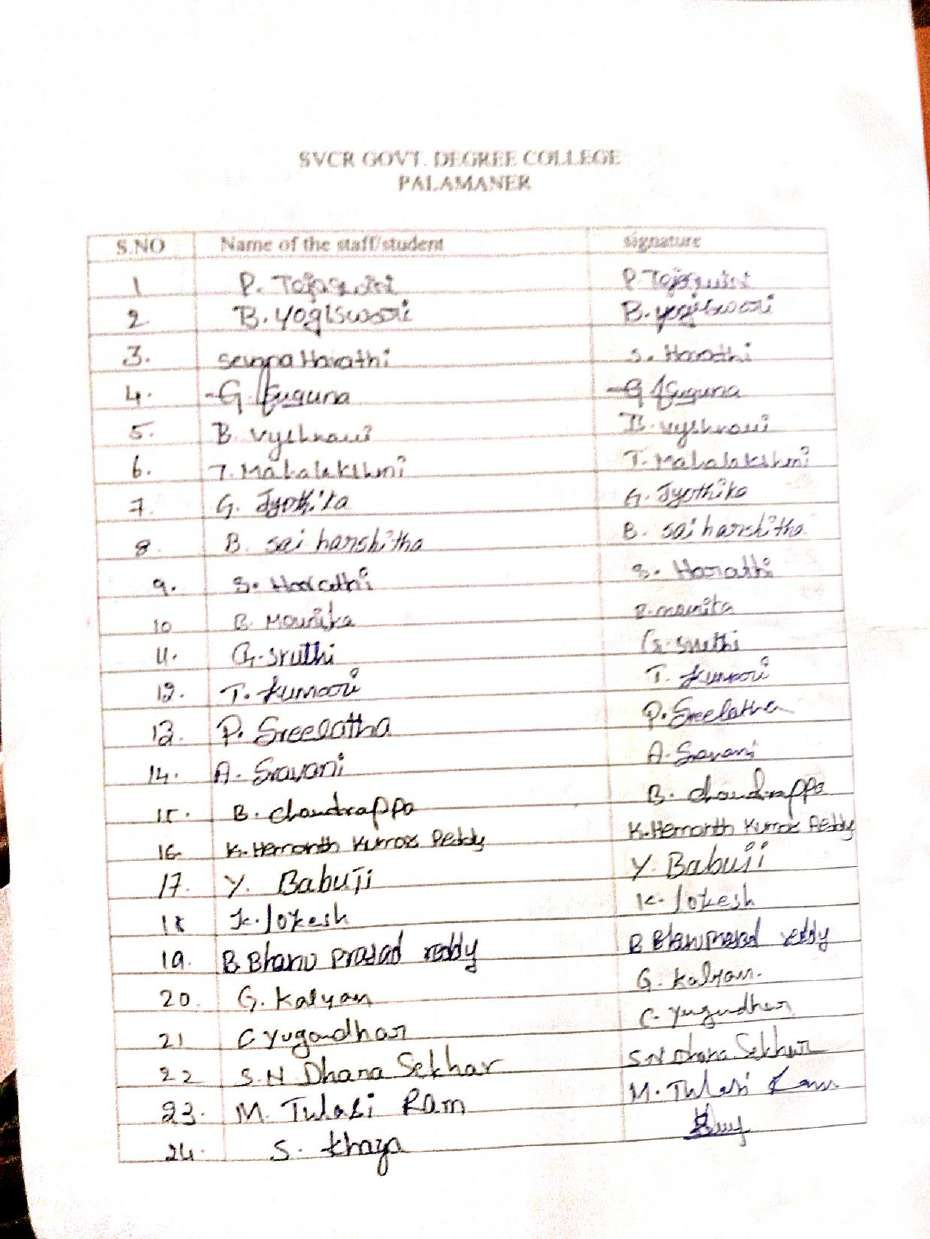 SVCR GOVT. DEGREE COLLEGE
PALAMANER
S.NO Name of the staff/student signature
1 P. Tejaswini P. Tejaswini
2 B. Yogiswari B. yogiswari
3. Harathi S. Harathi
4. G Suguna G Suguna
5. B. Vyshnavi B. vyshnavi
6. T. Mahalakshmi T. Mahalakshmi
7. G. Jyothika G. Jyothika
8. B. sai harshitha B. sai harshitha
9. S. Harathi S. Harathi
10 B. Mounika B. mounika
11. G. Sruthi G. Sruthi
12. T. kumari T. kumari
13. P. Sreelatha P. Sreelatha
14. A. Sravani A. Sravani
15. B. chandrappa B. chandrappa
16. K. Hemanth Kumar Reddy K. Hemanth Kumar Reddy
17. Y. Babuji Y. Babuji
18 K. lokesh K. lokesh
19. B. Bhanu Prasad reddy B Bhanu Prasad reddy
20. G. Kalyan G. Kalyan.
21 C Yugandhar C. Yugandhar
22 S.N Dhana Sekhar S.N Dhana Sekhar
23. M. Tulasi Ram M. Tulasi Ram
24. S. khaja